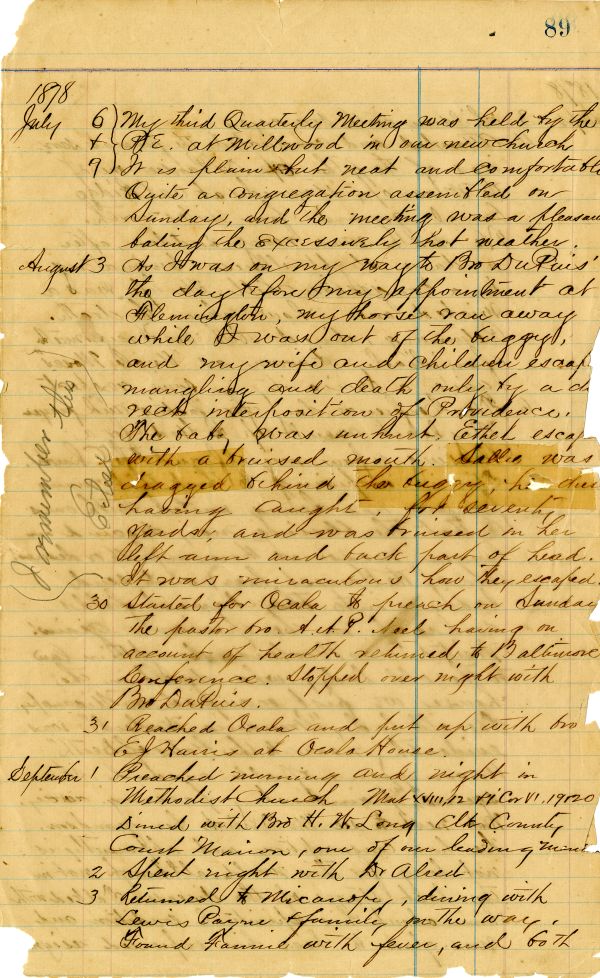 89
1878
July 6) My third Quarterly Meeting was held by the
+ P.E. at Millwood in our new church
9) It is plain but neat and comfortable
Quite a congregation assembled on
Sunday, and the meeting was a pleasan
bating the excessively hot weather.
August 3 As I was on my way to Bro DuPuis'
the day before my appointment at
Flemington, my horse ran away
while I was out of the buggy,
and my wife and children escap
mangling and death only by a di
rect interposition of Providence.
The babe was unhurt. Ethel escap
with a bruised mouth. Sallie was
dragged behind the buggy, her dress
having caught, for seventy
yards, and was bruised in her
left arm and back part of head.
It was miraculous how they escaped.
I remember this
30 Started for Ocala to preach on Sunday
the pastor bro. A.A.P. Noel having on
account of health returned to Baltimore
Conference. Stopped over night with
Bro DuPuis.
31 Reached Ocala and put up with bro
E J Harris at Ocala House
September 1 Preached morning and night in
Methodist Church Mat XVIII,12 + 1 Cor VI. 19&20
Dined with Bro H. W. Long Clk County
Court Marion, one of our leading
2 Spent night with Dr Alred
3 Returned to Micanopy, dining with
Lewis Payne & family on the way.
Found Fannie with fever, and both